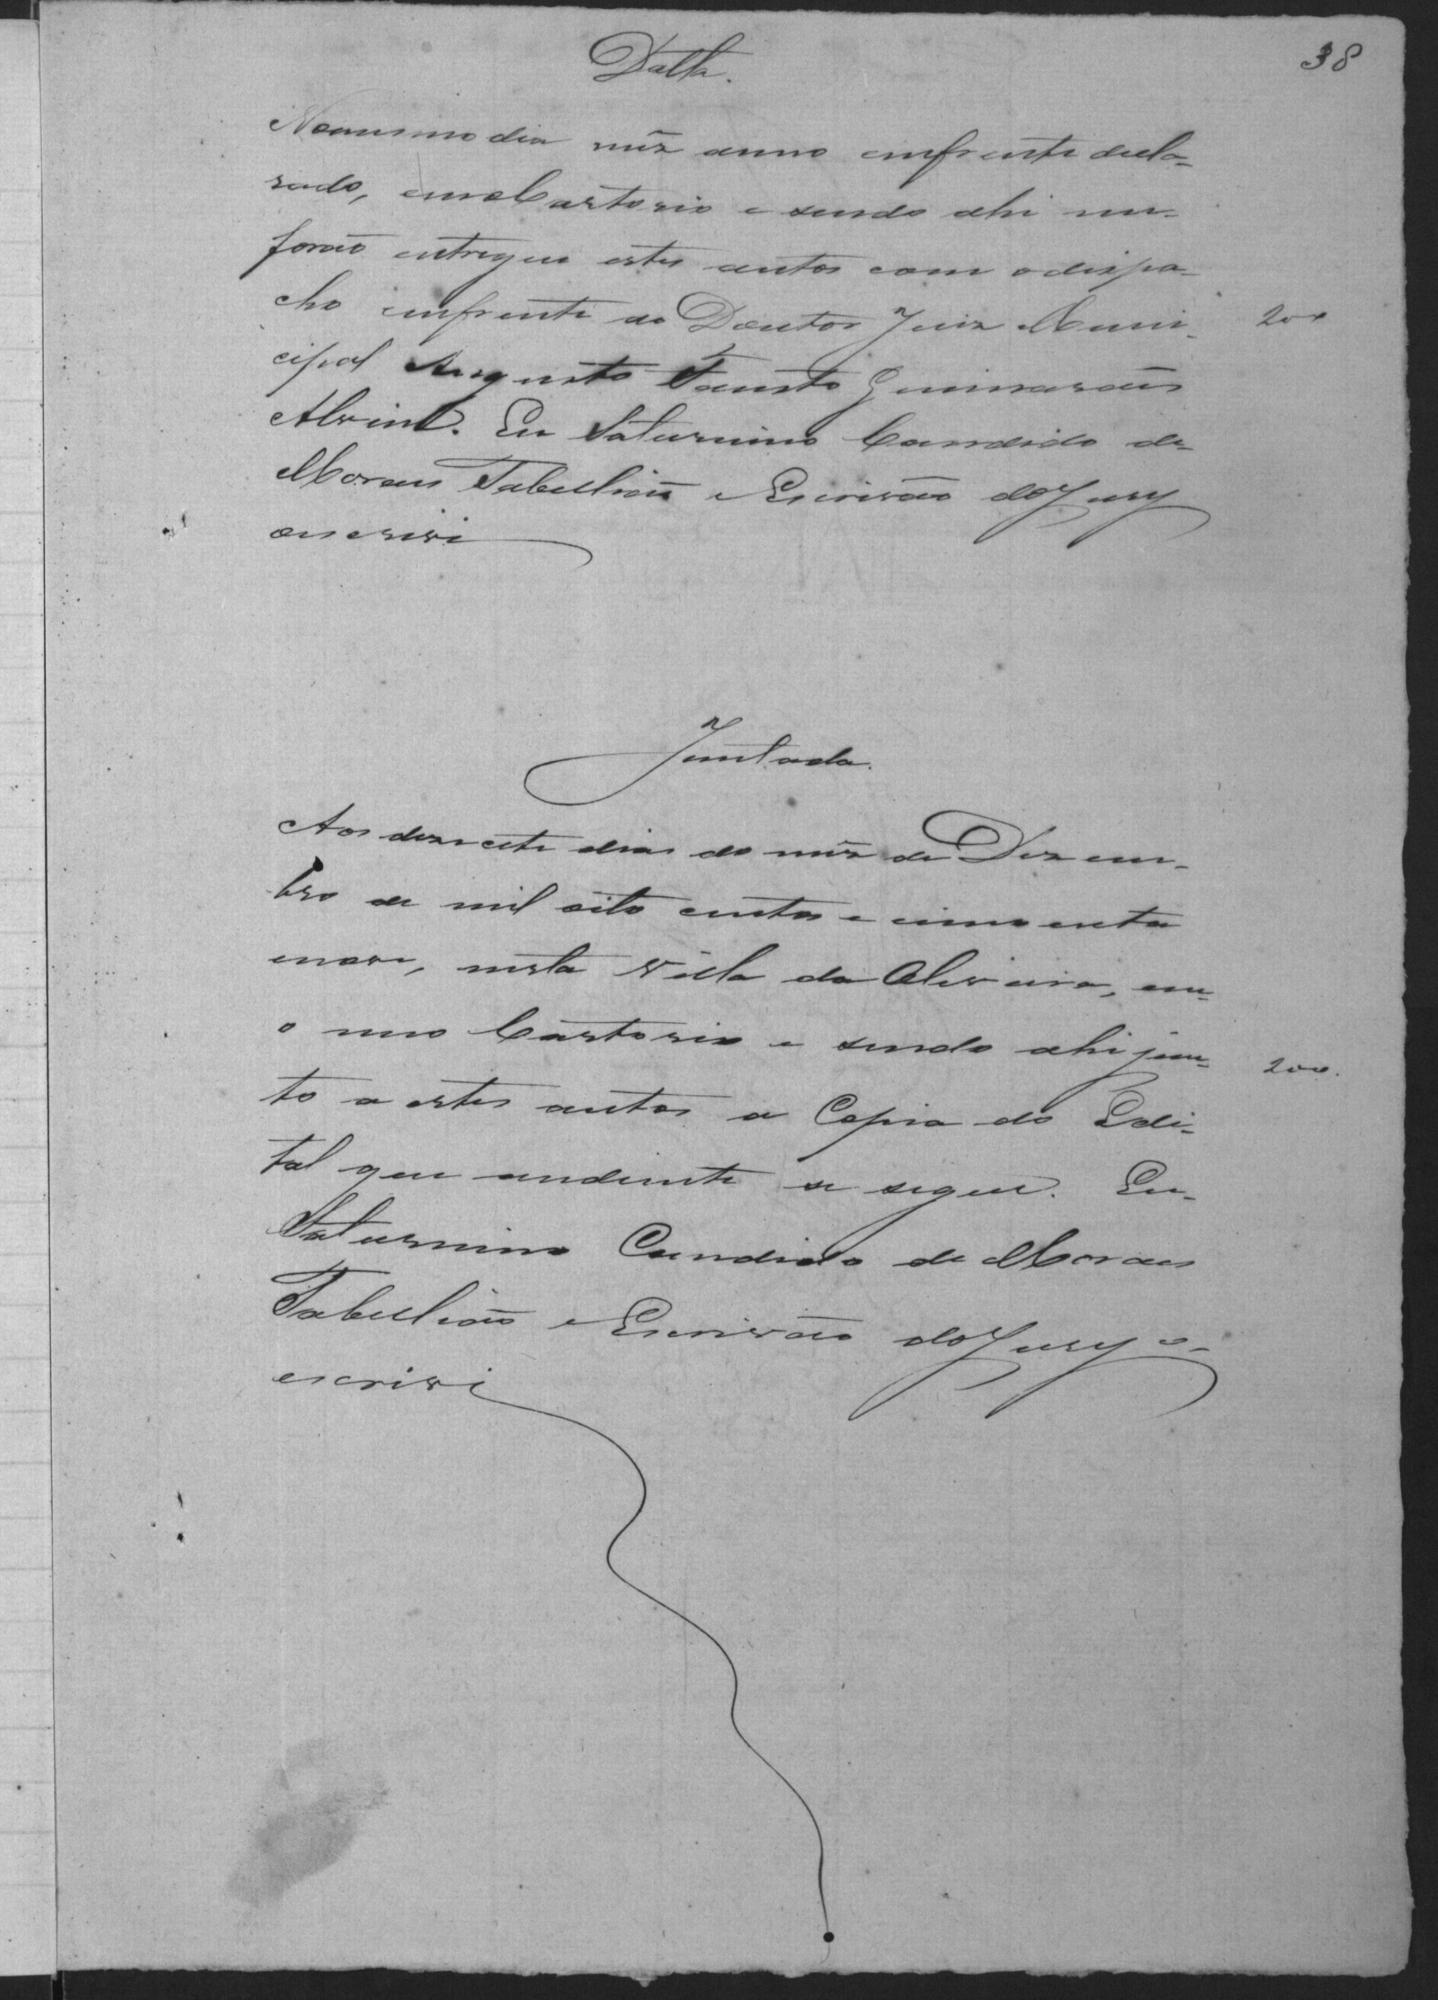 38
Datta.
No mesmo dia mêz anno emfrente decla-
rado, em o Cartorio e sendo ahi me
forão entregue estes autos com o dispa-
cho emfrente do Doutor Juiz Muni-
200
cipal Augusto Fausto Guimaraens
Alvim. Eu Saturnino Candido de
Moraes Tabellião e Escrivão do Jury
o escrivi
Juntada.
Aos desacete dias do mêz de Dezem-
bro de mil oito centos e cincoenta
enove, nesta Villa da Oliveira, em
o meu Cartorio e sendo ahi jun-
200.
to a estes autos a Copia do Edi-
tal que andiente se segue. Eu
Saturnino Candido de Moraes
Tabellião e Escrivão do Jury o
escrivi